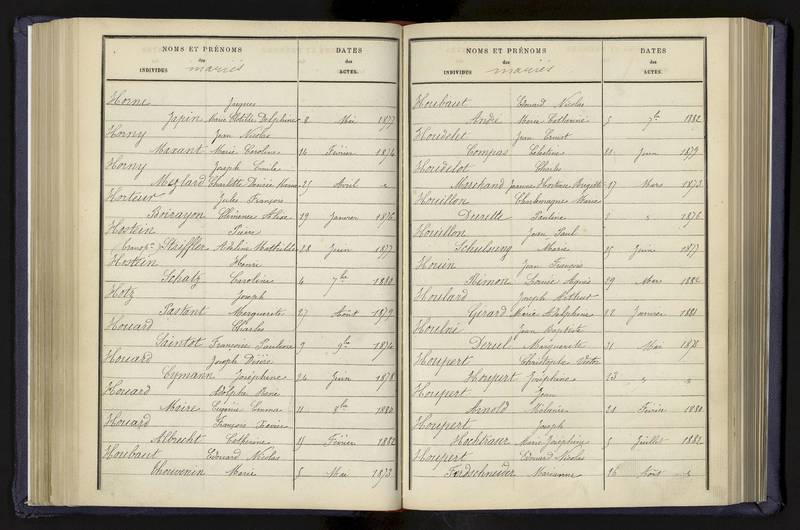 NOMS ET PRÉNOMS DATES
des des
INDIVIDUS mariés ACTES.
Horne Jacques
Japin Marie Clotilde Delphine 8 Mai 1877
Horny Jean Nicolas
Marant Marie Caroline 14 Février 1874
Horny Joseph Emile
Charlotte Désirée 25 Avril "
Horteur Jules François
Boirayon Clémence Alice 19 Janvier 1876
Hostein Pierre
Steiffler Adèle Mathilde 28 Juin 1877
Hostein Henri
Schatz Caroline 4 7bre 1880
Hotz Joseph
Pastant Marguerite 27 Août 1879
Houard Charles
Saintot Françoise Pauline 9 9bre 1874
Houard Joseph Désiré
Cymann Joséphine 24 Juin 1878
Houard Adolphe René
Moire Eugénie Emma 11 8bre 1880
Houard François Xavier
Albrecht Catherine 11 Février 1882
Houbaut Edouard Nicolas
Thouvenin Marie 5 Mai 1873
NOMS ET PRÉNOMS DATES
des des
INDIVIDUS mariés ACTES.
Houbaut Edouard Nicolas
André Marie Catherine 5 7bre 1882
Houdelet Jean Ernest
Compas Célestine 21 Juin 1879
Houdelot Charles
Marchand Jeanne Hortense Brigitte 17 Mars 1873
Houillon Charlemagne Marie
Durette Pauline 2 " 1876
Houillon Jean Paul
Schulburg Marie 25 Juin 1877
Houin Jean François
Rémon Louise Agnès 29 Mars 1882
Houlard Joseph Arthur
Girard Marie Adelphine 22 Janvier 1881
Houlné Jean Baptiste
Deruel Marguerite 21 Mai 1878
Houpert Christophe Victor
Houpert Joséphine 23 " "
Houpert Jean
Arnold Mélanie 24 Février 1880
Houpert Joseph
Hochtrauer Marie Joséphine 5 Juillet 1882
Houpert Edouard Nicolas
Feldschneider Marianne 26 Août "